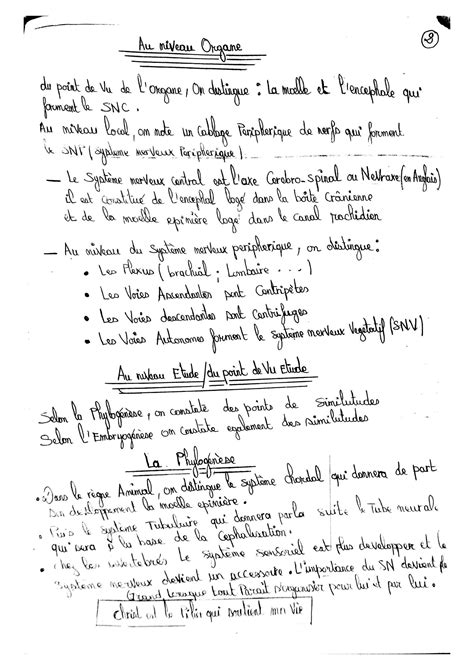 3
Au niveau Organe
du point de Vu de l'organe, On distingue : La moelle et l'encephale qui
forment le SNC.
Au niveau local, on note un Cablage Peripherique de nerfs qui forment
le SNP (systeme nerveux Peripherique)
— Le Système nerveux central est l'axe Cerebro-spinal ou Nevraxe (en Anglais)
il est constitué de l'encephal logé dans la boîte Crânienne
et de la moelle epinière logé dans le canal rachidien
— Au niveau du Système nerveux peripherique, on distingue :
• Les Plexus (brachial ; Lombaire ...)
• Les Voies Ascendantes sont Centripètes
• Les Voies descendantes sont Centrifuges
• Les Voies Autonomes forment le système nerveux Vegetatif (SNV)
Au niveau Etude / du point de Vu Etude
Selon la Phylogénèse, on constate des points de Similutudes
Selon l'Embryogénèse on constate egalement des similitudes
La Phylogénèse
• Dans le règne Animal, on distingue le système chordal qui donnera de part
son developpement la moelle epinière.
• Puis le système Tubulaire qui donnera par la suite le Tube neural
qui sera à la base de la Cephalisation.
• chez les invertebrés Le système sensoriel est plus developper et le
Système nerveux devient un accessoire. L'importance du SN devient plus
Grand Lorsque tout Parait s'organiser pour lui et par lui.
Christ est le qui soutient ma vie